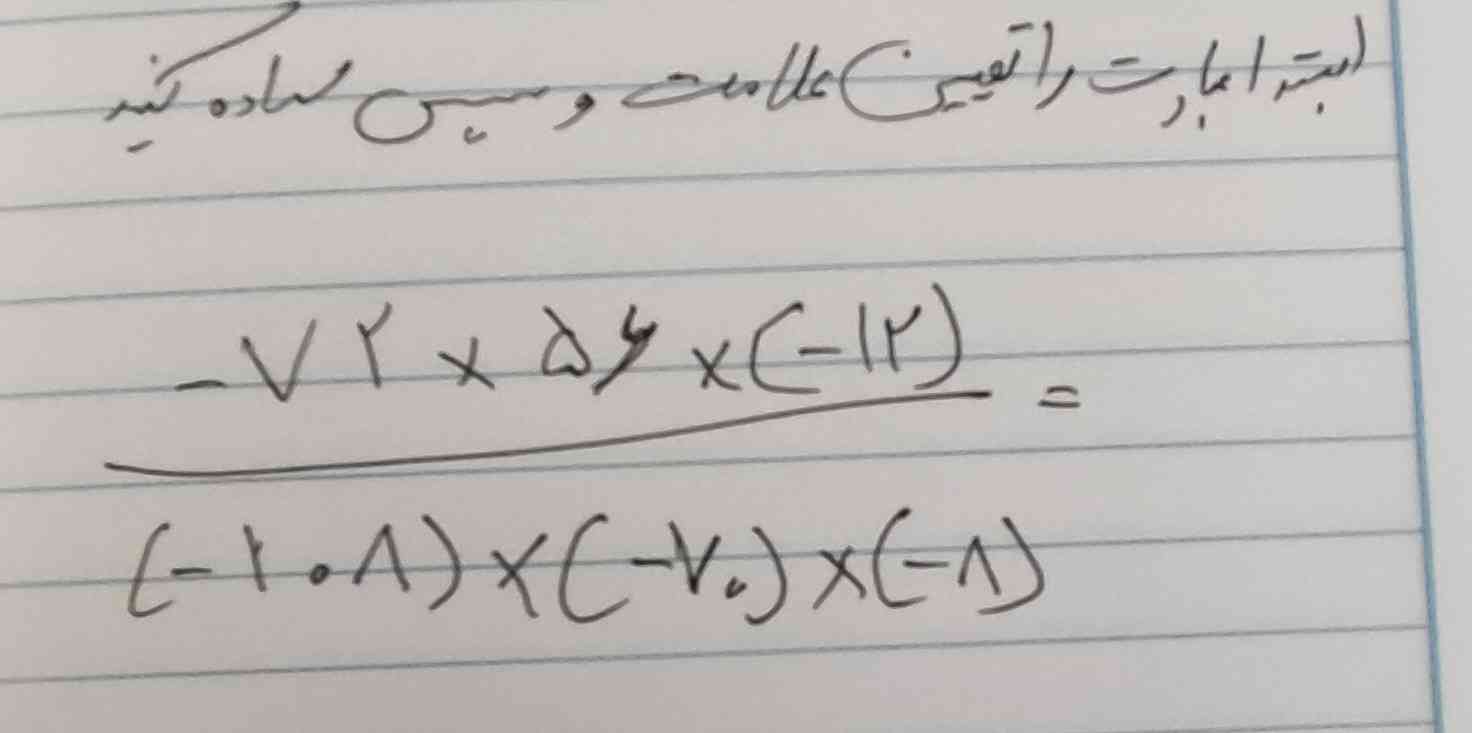 ابتدا عبارت را تعیین علامت و سپس ساده کنید
-۷۲ × ۵۶ × (-۱۲) =
(-۱۰۸) × (-۷۰) × (-۸)